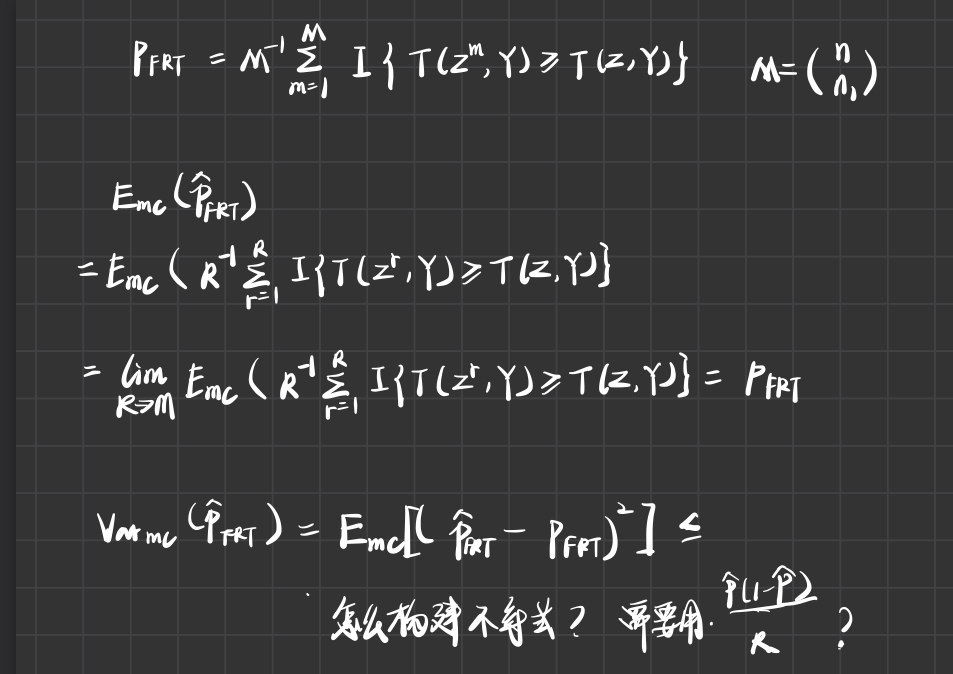 P_FRT = M^{-1} Σ_{m=1}^{M} I{T(z^m, Y) ⩾ T(z, Y)} M = (n n_1)
E_mc(p̂_FRT)
= E_mc(R^{-1} Σ_{r=1}^{R} I{T(z^r, Y) ⩾ T(z, Y)}
= lim_{R→M} E_mc(R^{-1} Σ_{r=1}^{R} I{T(z^r, Y) ⩾ T(z, Y)} = P_FRT
Var_mc(p̂_FRT) = E_mc[(p̂_FRT - P_FRT)^2] ≤
怎么构建不等式? 需要用. p̂(1-p̂)/R ?